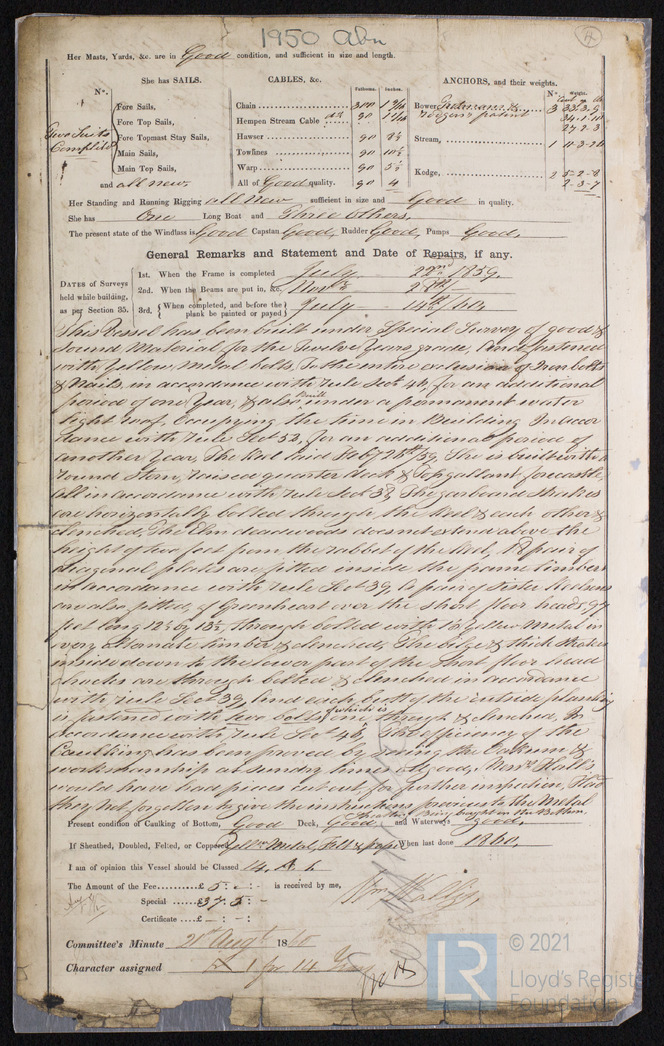 1950 Abn
Her Masts, Yards, &c. are in Good condition, and sufficient in size and length.
She has SAILS. CABLES, &c. ANCHORS, and their weights.
N°. Fathoms. Inches. N°.
Fore Sails, Chain 300 Bower 3 33.3.9
Fore Top Sails, Hempen Stream Cable 90 Rodgers patent 34.1.10
Two Suits Fore Topmast Stay Sails, Hawser 90 27.2.3
Complete Main Sails, Towlines 90 Stream, 1
Main Top Sails, Warp 90 Kedge, 2 5-2-8
and all new. All of Good quality. 90 4 2-3-7
Her Standing and Running Rigging all New sufficient in size and Good in quality.
She has One Long Boat and Three others.
The present state of the Windlass is Good Capstan Good, Rudder Good, Pumps Good,
General Remarks and Statement and Date of Repairs, if any.
DATES of Surveys held while building, as per Section 35.
1st. When the Frame is completed July 22nd 1859.
2nd. When the Beams are put in, &c.
3rd. When completed, and before the plank be painted or payed July 14th /60.
This Vessel has been built under Special Survey of good &
Sound Material for the Twelve Years grade, and fastened
with Yellow Metal bolts, To the entire exclusion of Iron bolts
& Nails, in accordance with Rule Sect 46, for an additional
period of one Year, & also built under a permanent water
tight roof, Occupying the time in Building In accor
dance with Rule Sect 53, for an additional period of
another Year, The Keel laid Feby /59, She is built with a
round Stern, raised quarter deck & Topgallant forecastle,
All in accordance with rule Sect 38, The garboard Strakes
are horizontally bolted through the Keel & each other &
clenched, The Elm deadwoods does not extend above the
height of two feet from the rabbet of the Keel, pair of
diagonal plates are fitted inside the frame timbers
in accordance with rule Sect 39, a pair of Sister Keelsons
are also fitted, of Greenheart over the short floor heads, 97
feet long 12½ by 13½, through bolted with Yellow Metal in
every alternate timber & clenched, The bilge & thick Strakes
inside down to the lower part of the short floor head
are through bolted & clenched in accordance
with rule Sect 39, and each butt of the outside planking
is fastened with two bolts one of which is through & clenched, In
accordance with rule Sect 46, The efficiency of the
Caulking has been proved by the Oakum &
workmanship at sundry times all good, Messrs Hall's
would have had pieces cut out for further inspection, Had
they not forgotten to give the instructions previous to the Metal
Sheathing Being brought on the Bottom.
Present condition of Caulking of Bottom, Good Deck, Good, and Waterways Good,
If Sheathed, Doubled, Felted, or Coppered Yellow Metal, Felt When last done 1860.
I am of opinion this Vessel should be Classed 14. A. 1.
The Amount of the Fee £ 5 : - : - is received by me,
Special £
Certificate £ - : - : -
Committee's Minute 21st Augt 1860
Character assigned A 1 for 14 Years
LR
© 2021
Lloyd's Register
Foundation